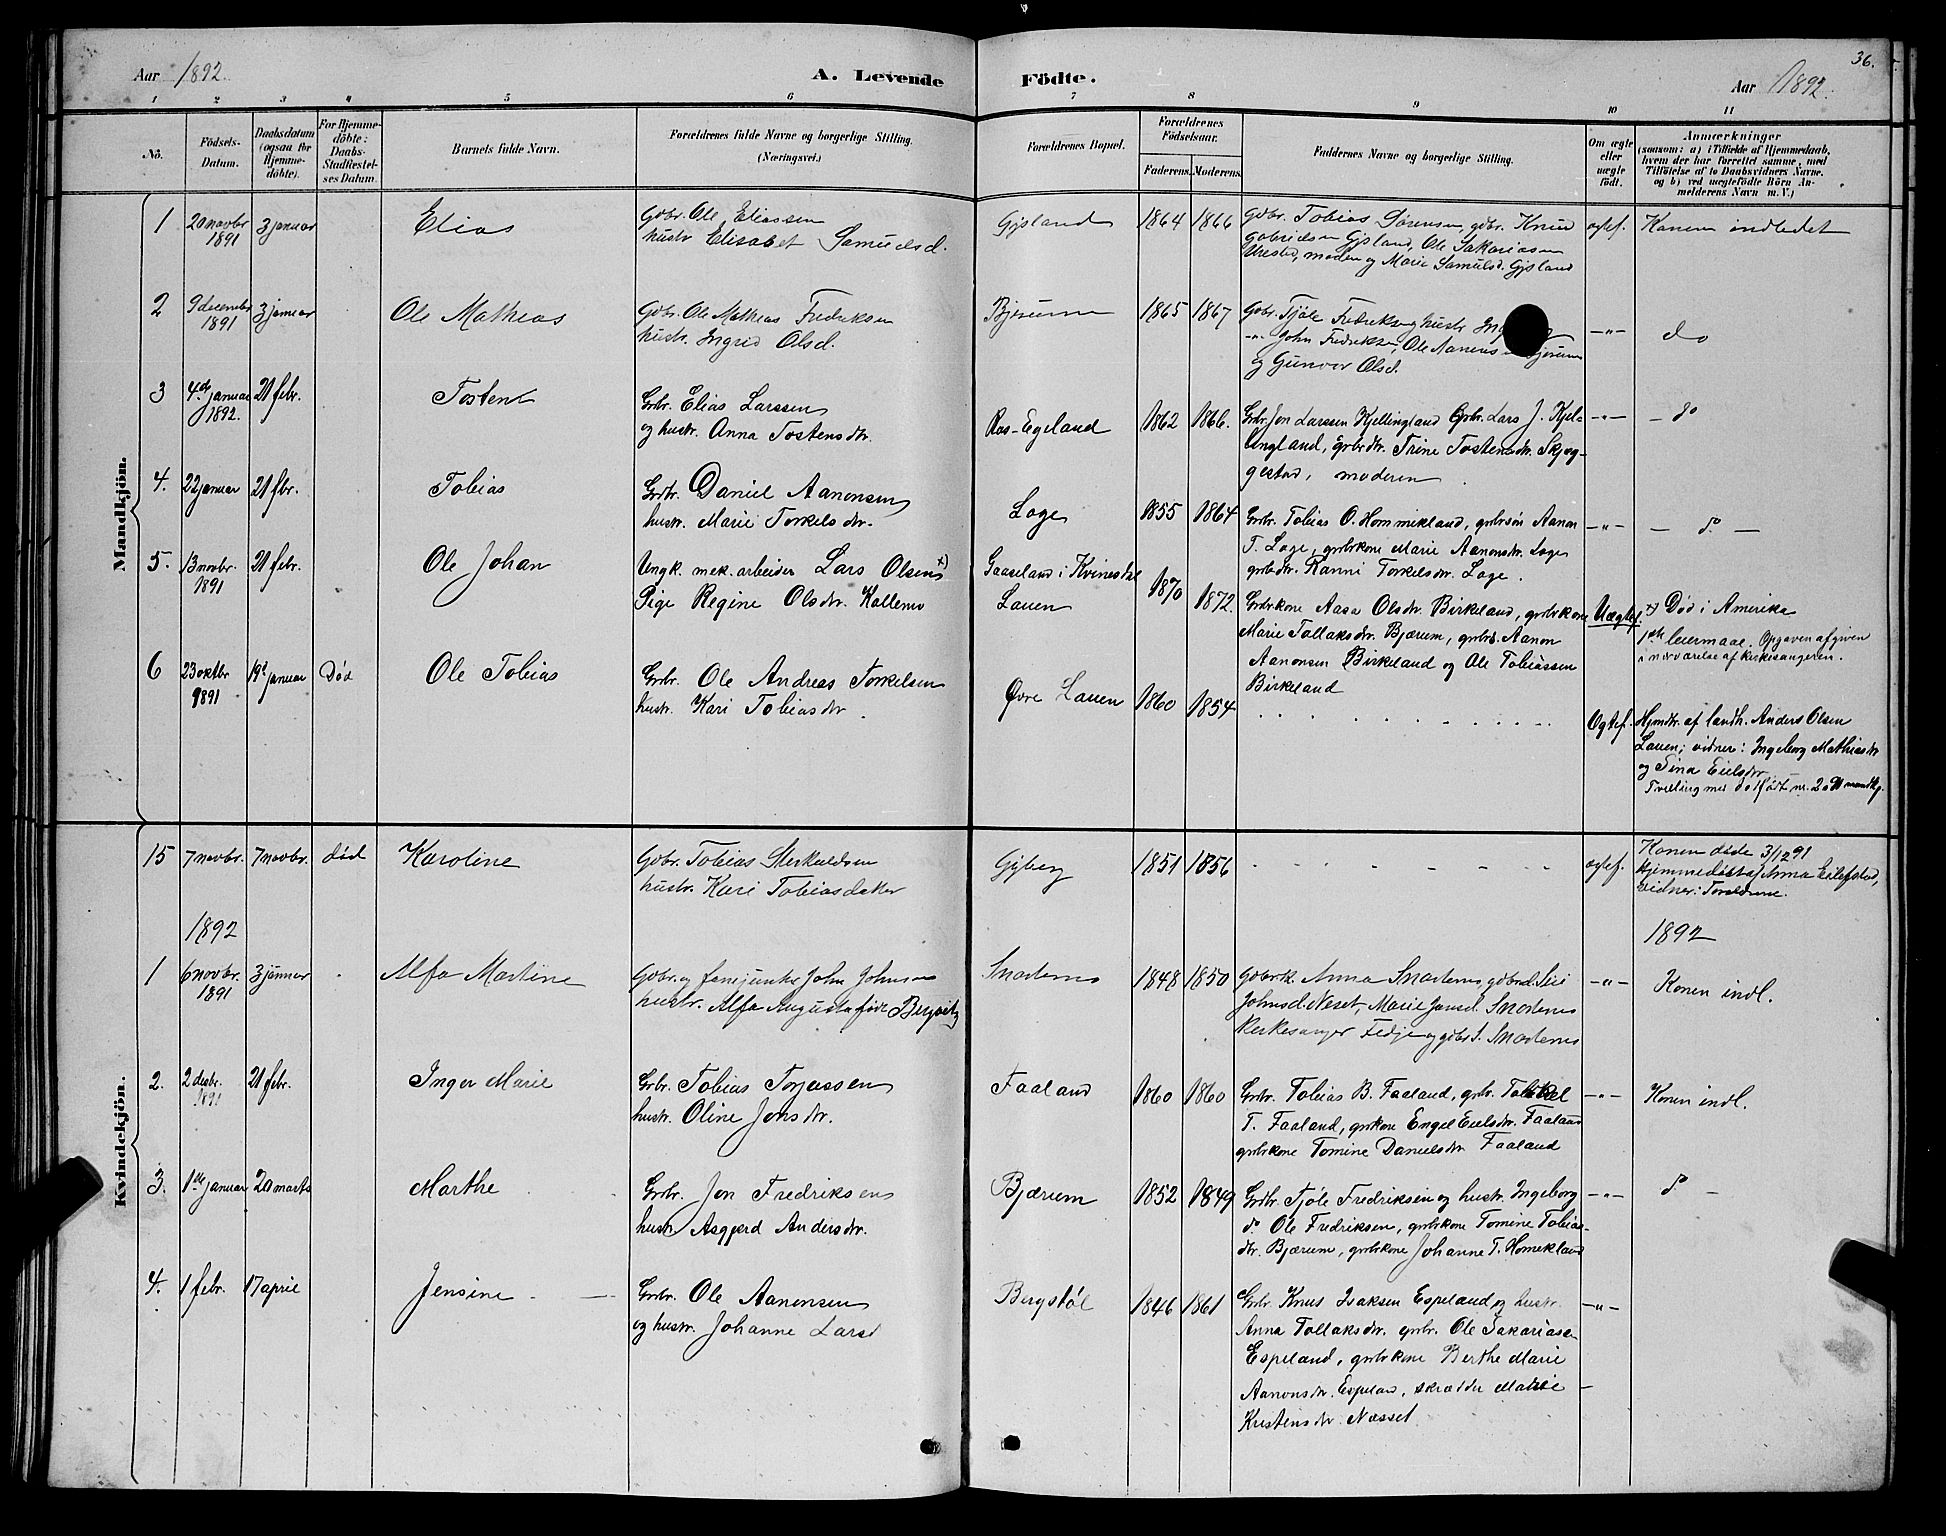 Aar 1892.
A. Levende
Födte.
Aar 1892.
36.
1 2 3 4 5 6 7 8 9 10 11
No.
Födsels-
Datum.
Daabsdatum
(ogsaa for
Hjemme-
döbte).
For Hjemme-
döbte:
Daabs-
Stadfæstel-
ses Datum.
Barnets fulde Navn.
Forældrenes fulde Navne og borgerlige Stilling.
(Næringsvei.)
Forældrenes Bopæl.
Forældrenes
Födselsaar.
Faderens. Moderens.
Faddernes Navne og borgerlige Stilling.
Om ægte
eller
uægte
födt.
Anmærkninger
(saasom: a) i Tilfælde af Hjemmedaab,
hvem der har forrettet samme, med
Tilföielse af to Daabsvidners Navne.
og b) ved uægtefödte Börn An-
melderens Navn m. V.)
Mandkjön.
1
20 novbr
1891
3 januar
Elias
Gdbr. Ole Eliassen
hustr Elisabet Samuelsd.
Gysland
1864 1866
Gdbr. Tobias Sørensen, gdbr. Knud
Gabrielsen Gysland, Ole Sakariasen
Urestad, moden og Marie Samuelsd. Gysland
ægtef.
Konen indledet
2
9 decembr
1891
3 januar
Ole Mathias
Gdbr. Ole Mathias Fredriksen
hustr. Ingrid Olsd.
Bjerum
1865 1867
Gdbr. Tjøle Fredriksen og hustr
-"- John Fredriksen, Ole Aanensen Bjerum
og Gunvor Olsd.
-"-
do
3
4de januar
1892.
21 febr.
Tosten
Grbr. Elias Larssen
og hustr. Anna Tostensdtr.
Ras-Egeland
1862 1866.
Grbr. Jon Larssen Kjellingland Grbr. Lars J. Kjel-
lingland, grbrdtr. Trine Tostensdtr. Skjeg-
gestad, moderen
-"-
- do
4.
22 januar
21 fbr.
Tobias
Grbr. Daniel Aanonsen
hustr. Marie Torkelsdtr.
Loge
1855 1864
Grbr. Tobias O. Hommekland, grbrsøn Aanon
T. Loge, grbrkone Marie Aanonsdtr. Loge
grbrdtr. Ranni Torkelsdtr. Loge.
-"-
- do -
5.
13 novbr.
1891
21 febr.
Ole Johan
Ungk. mek. arbeider Lars Olsen x)
Pige Regine Olsdtr. Kallemo
Gaaseland i Kvinesdal
Lauen
1870 1872
Grbrkone Aasa Olsdtr. Birkeland, grbrkone
Marie Tollaksdtr. Bjærum, grbrs. Aanon
Aanonsen Birkeland og Ole Tobiassen
Birkeland
Uægtef.
x) Død i Amerika
1ste leiermaal. Opgaven afgiven
i nærværelse af kirkesangeren.
6
23 oktbr
1891
19d januar
Død
Ole Tobias
Grbr. Ole Andreas Torkelsen
hustr. Kari Tobiasdtr.
Øvre Lauen
1860 1854
Ægtef.
Hjmdbt. af landh. Anders Olsen
Lauen; vidner: Ingeborg Mathiasdtr
og Sina Eielsdtr.
Tvilling med dødfødt nr. 2 91 mandkj.
Kvindekjön.
15
7 novbr.
7 novbr.
død
Karoline
Gdbr. Tobias Sterkeldsen
hustr. Kari Tobiasdatter
Gyberg
1851 1856
ægtef.
Konen døde 3/12 91
Hjemmedøbt af Anna Eilefstad,
vidner: Forældrene.
1892
1892
1
6 novbr.
1891
3 januar
Alfa Martine
Gdbr. og fanejunker John Johnsen
hustr. Alfa Augusta født Bergwitz
Snartemo
1848 1850
Gdbrk. Anna Snartemo, gdbrd. Siri
Johnsd. Neset, Marie Jansd. Snartemo
Kirkesanger Fedje og gdbr S. Snartemo
-"-
Konen indl.
2.
2 desbr.
1891
21 febr.
Inger Marie
Grbr. Tobias Torjussen
hustr. Oline Jonsdtr.
Faaland
1860 1860
Grbr. Tobias B. Faaland, grbr. Tollak
T. Faaland, grbrkone Engel Eielsdtr. Faaland
grbrkone Tomine Danielsdtr Faaland
-"-
Konen indl.
3.
1ste januar
20 marts
Marthe
Grbr. Jon Fredriksen
hustr Asgjerd Andersdtr.
Bjærum
1852 1849
Grbr. Tjøle Fredriksen og hustr. Ingeborg
do Ole Fredriksen, grbrkone Tomine Tobias-
dtr. Bjærum, grbrkone Johanne T. Homekland
-"-
do -
4.
1 febr.
17 april
Jensine
Grbr. Ole Aanonsen
og hustr. Johanne Larsd
Bergstøl
1846 1861
Grbr. Knut Isaksen Espeland og hustr.
Anna Tollaksdtr. grbr. Ole Sakariasen
Espeland, grbrkone Berthe Marie
Aanonsdtr. Espeland, skrædder Mallie
Kristensdtr. Næsset.
-"-